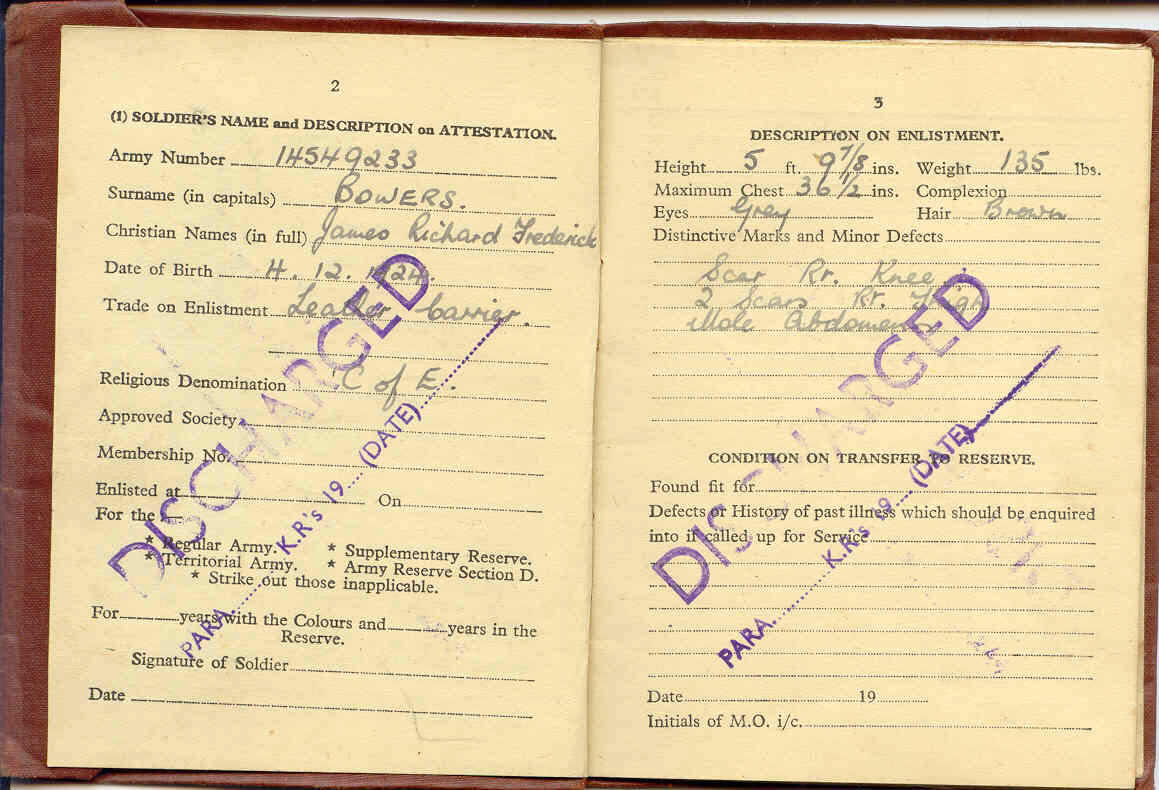 2
(1) SOLDIER'S NAME and DESCRIPTION on ATTESTATION.
Army Number 14549233
Surname (in capitals) BOWERS.
Christian Names (in full) James Richard Frederick
Date of Birth 4. 12. 1924.
Trade on Enlistment Leather Carrier.
Religious Denomination C of E.
Approved Society
Membership No.
Enlisted at On
For the :—
* Regular Army. * Supplementary Reserve.
* Territorial Army. * Army Reserve Section D.
* Strike out those inapplicable.
For years with the Colours and years in the
Reserve.
Signature of Soldier
Date
DISCHARGED
PARA. K.R's 19 (DATE)
3
DESCRIPTION ON ENLISTMENT.
Height 5 ft. 9 7/8 ins. Weight 135 lbs.
Maximum Chest 36 1/2 ins. Complexion
Eyes Grey Hair Brown
Distinctive Marks and Minor Defects
Scar Rt. Knee.
2 Scars Rt. Thigh
Mole Abdomen
CONDITION ON TRANSFER TO RESERVE.
Found fit for
Defects or History of past illness which should be enquired
into if called up for Service
Date 19
Initials of M.O. i/c.
DISCHARGED
PARA. K.R's 19 (DATE)